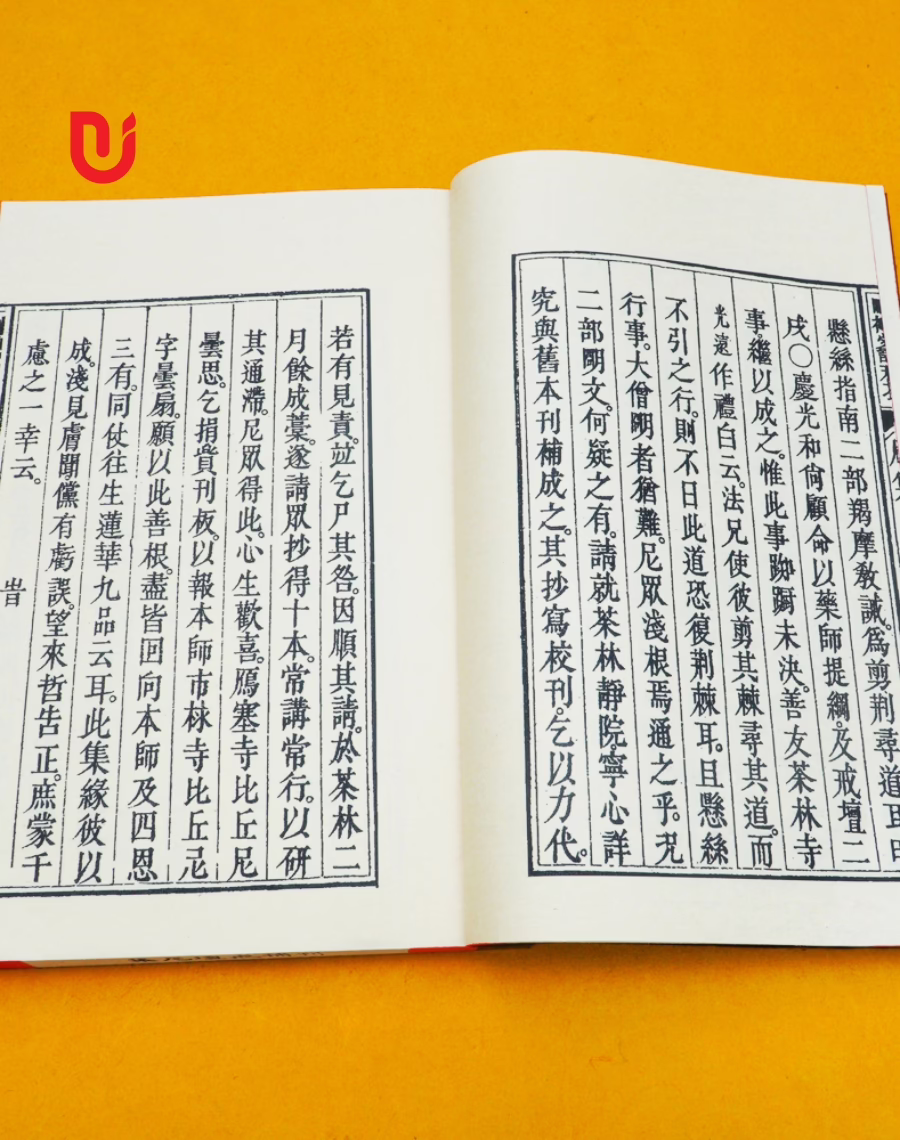 懸絲指南二部羯摩教誡。爲剪荆尋道
戌〇慶光和尙願命以藥師提綱。及戒壇二
事。繼以成之。惟此事踟蹰未決。善友茶林寺
光遠作禮白云。法兄使彼剪其棘尋其道。而
不引之行。則不日此道恐復荆棘耳。且懸絲
行事。大僧明者猶難。尼眾淺根焉通之乎。況
二部明文。何疑之有。請就茶林靜院。寧心詳
究與舊本刊補成之。其抄寫校刊。乞以力代。
若有見責。竝乞尸其咎。因順其請。於茶林二
月餘成藁。遂請眾抄得十本。常講常行。以研
其通滯。尼眾得此。心生歡喜。鴈塞寺比丘尼
曇思。乞捐貲刊板。以報本師市林寺比丘尼
字曇扇。願以此善根。盡皆回向本師及四恩
三有。同仗往生蓮華九品云耳。此集緣彼以
成。淺見膚聞。儻有虧誤。望來哲吿正。庶蒙千
慮之一幸云。
旹